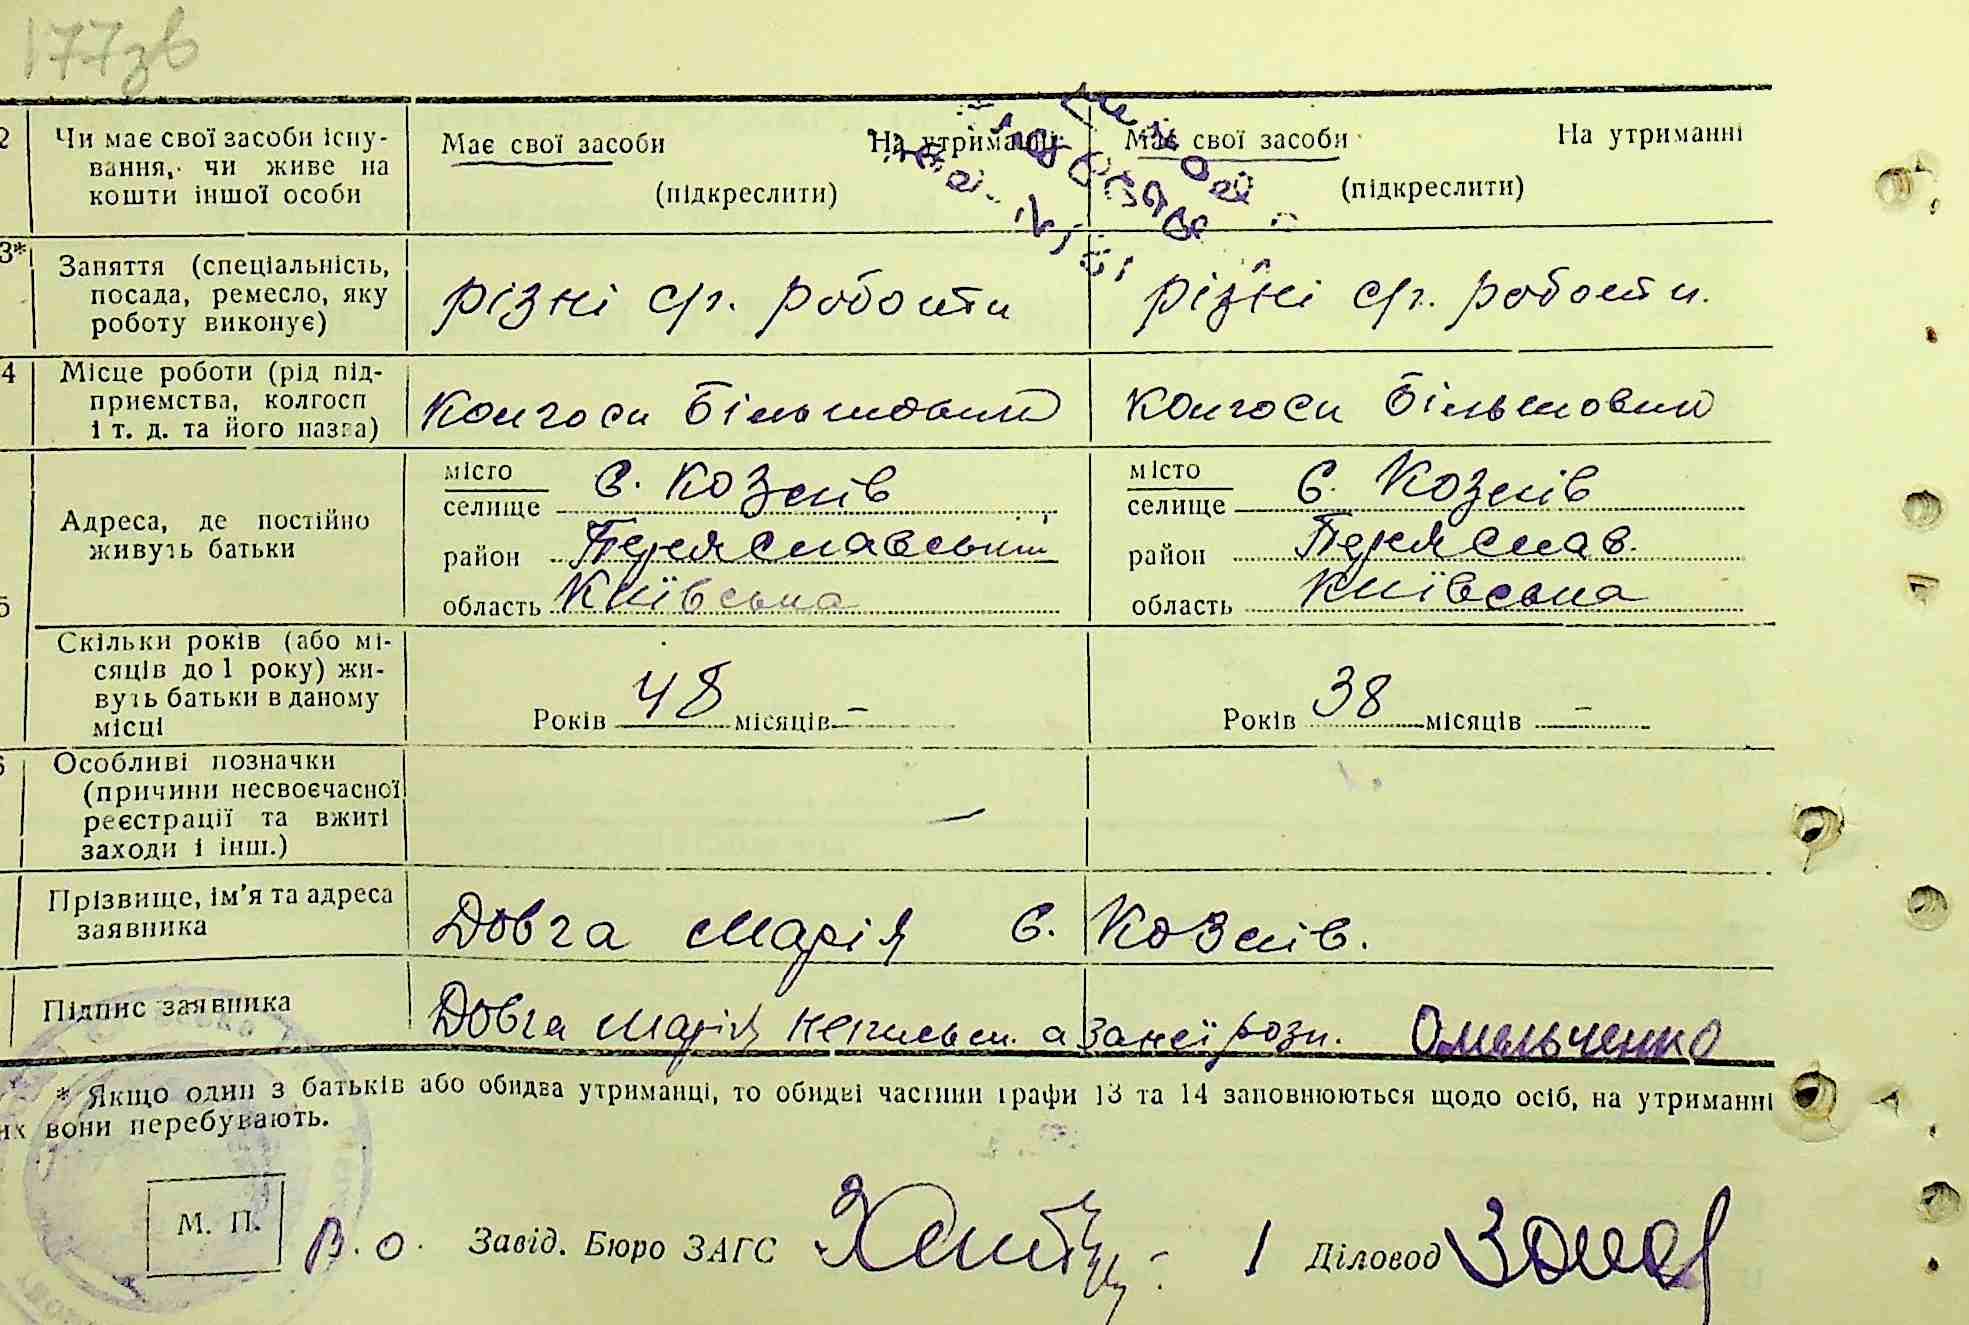 177зв
2 Чи має свої засоби існу-
вання, чи живе на
кошти іншої особи
Має свої засоби На утриманні
(підкреслити)
Має свої засоби На утриманні
(підкреслити)
3* Заняття (спеціальність,
посада, ремесло, яку
роботу виконує)
різні с/г. роботи
різні с/г. роботи.
4 Місце роботи (рід під-
приємства, колгосп
і т. д. та його назва)
колгосп Більшовик
колгосп Більшовик
5 Адреса, де постійно
живуть батьки
місто
селище с. Козлів
район Переяславський
область Київська
місто
селище с. Козлів
район Переяслав.
область Київська
Скільки років (або мі-
сяців до 1 року) жи-
вуть батьки в даному
місці
Років 48 місяців –
Років 38 місяців –
6 Особливі позначки
(причини несвоєчасної
реєстрації та вжиті
заходи і інш.)
–
Прізвище, ім'я та адреса
заявника
Довга Марія с. Козлів.
Підпис заявника
Довга Марія негильсм. а за неї розп. Омельченко
* Якщо один з батьків або обидва утриманці, то обидві частини графи 13 та 14 заповнюються щодо осіб, на утриманні
их вони перебувають.
М. П.
В. о. Завід. Бюро ЗАГС
Діловод